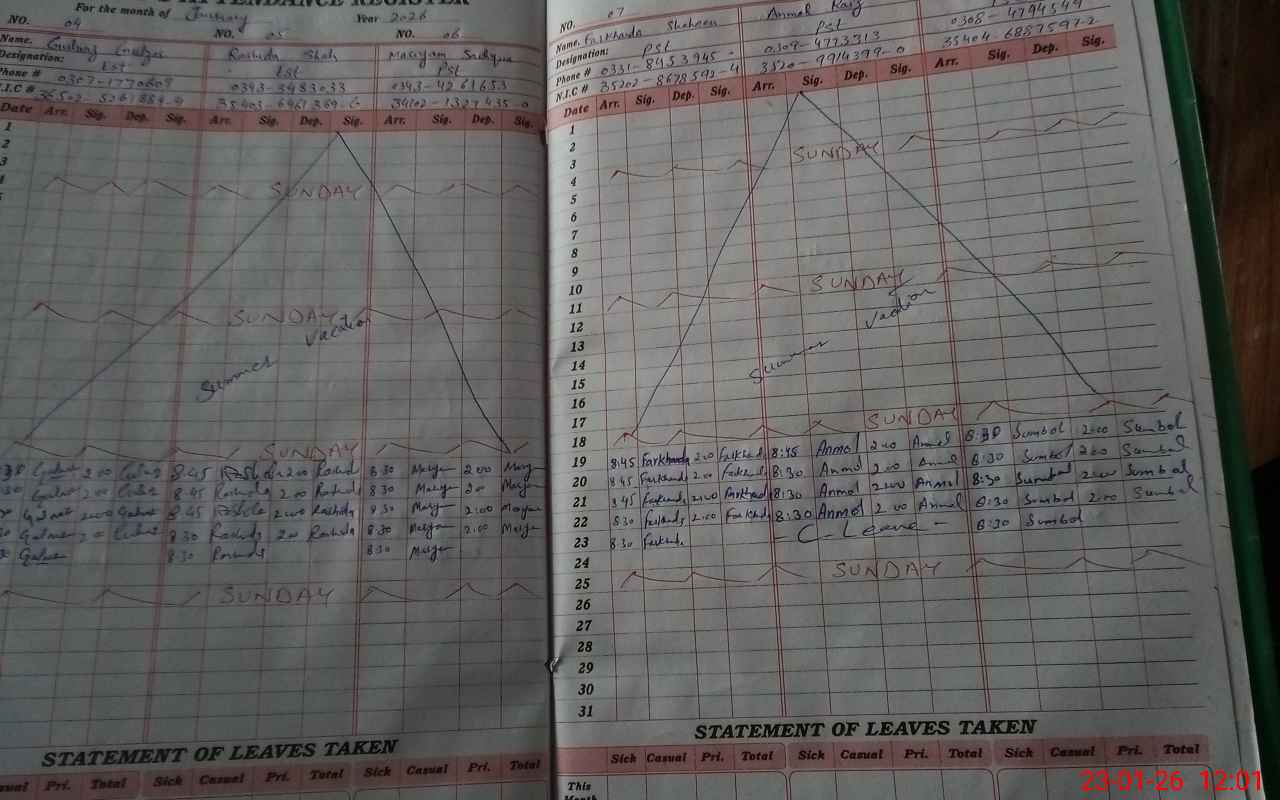 ATTENDANCE REGISTER
For the month of January Year 2026
NO. 04 NO. 05 NO. 06
Name. Rashida Shah Maryam Sadiqua
Designation: Est Est Pst
Phone # 0307-1770609 0343-3483033 0343-4261653
N.I.C # 35403-6961369-6 34102-1327435-0
Date Arr. Sig. Dep. Sig. Arr. Sig. Dep. Sig. Arr. Sig. Dep. Sig.
1
2
3
4 SUNDAY
5
SUNDAY
Summer Vacation
SUNDAY
2.00 8:45 Rashida 2.00 Rashid 8 30 Maryam 2.00 Mary
2.00 8 45 Rashida 2.00 Rashida 8 30 Maryam 2.00 Marya
2.00 8 45 Rashida 2.00 Rashida 8 30 Maryam 2.00 Maryam
2.00 8 30 Rashida 2.00 Rashida 8.30 Maryam 2.00 Maryam
8.30 Rashida 8 30 Maryam
SUNDAY
STATEMENT OF LEAVES TAKEN
Casual Pri. Total Sick Casual Pri. Total Sick Casual Pri. Total
NO. 07
Name. Farkhanda Shaheen Anmol Raiz
Designation: Pst Pst
Phone # 0331-8453945 0309-4773313 0308-4794549
N.I.C # 35202-8678592-4 3520-9914399-0 35404-6887597-2
Date Arr. Sig. Dep. Sig. Arr. Sig. Dep. Sig. Arr. Sig. Dep. Sig.
1
2
3 SUNDAY
4
5
6
7
8
9
10 SUNDAY
11
12 Vaction
13
14 Summer
15
16
17 SUNDAY
18
19 8:45 Farkhanda 2.00 Farkhand 8:45 Anmol 2.00 Anmol 8:30 Sumbol 2.00 Sumbol
20 8:45 Farkhanda 2.00 Farkhand 8:30 Anmol 2.00 Anmol 8:30 Sumbol 2.00 Sumbol
21 8:45 Farkhanda 2:00 Farkhand 8:30 Anmol 2:00 Anmol 8:30 Sumbol 2.00 Sumbol
22 8:30 Farkhanda 2:00 Farkhanda 8:30 Anmol 2.00 Anmol 8:30 Sumbol 2.00 Sumbol
23 8:30 Farkhanda - C-Leave - 8:30 Sumbol
24
25 SUNDAY
26
27
28
29
30
31
STATEMENT OF LEAVES TAKEN
Sick Casual Pri. Total Sick Casual Pri. Total Sick Casual Pri. Total
This
Month
23-01-26 12:01